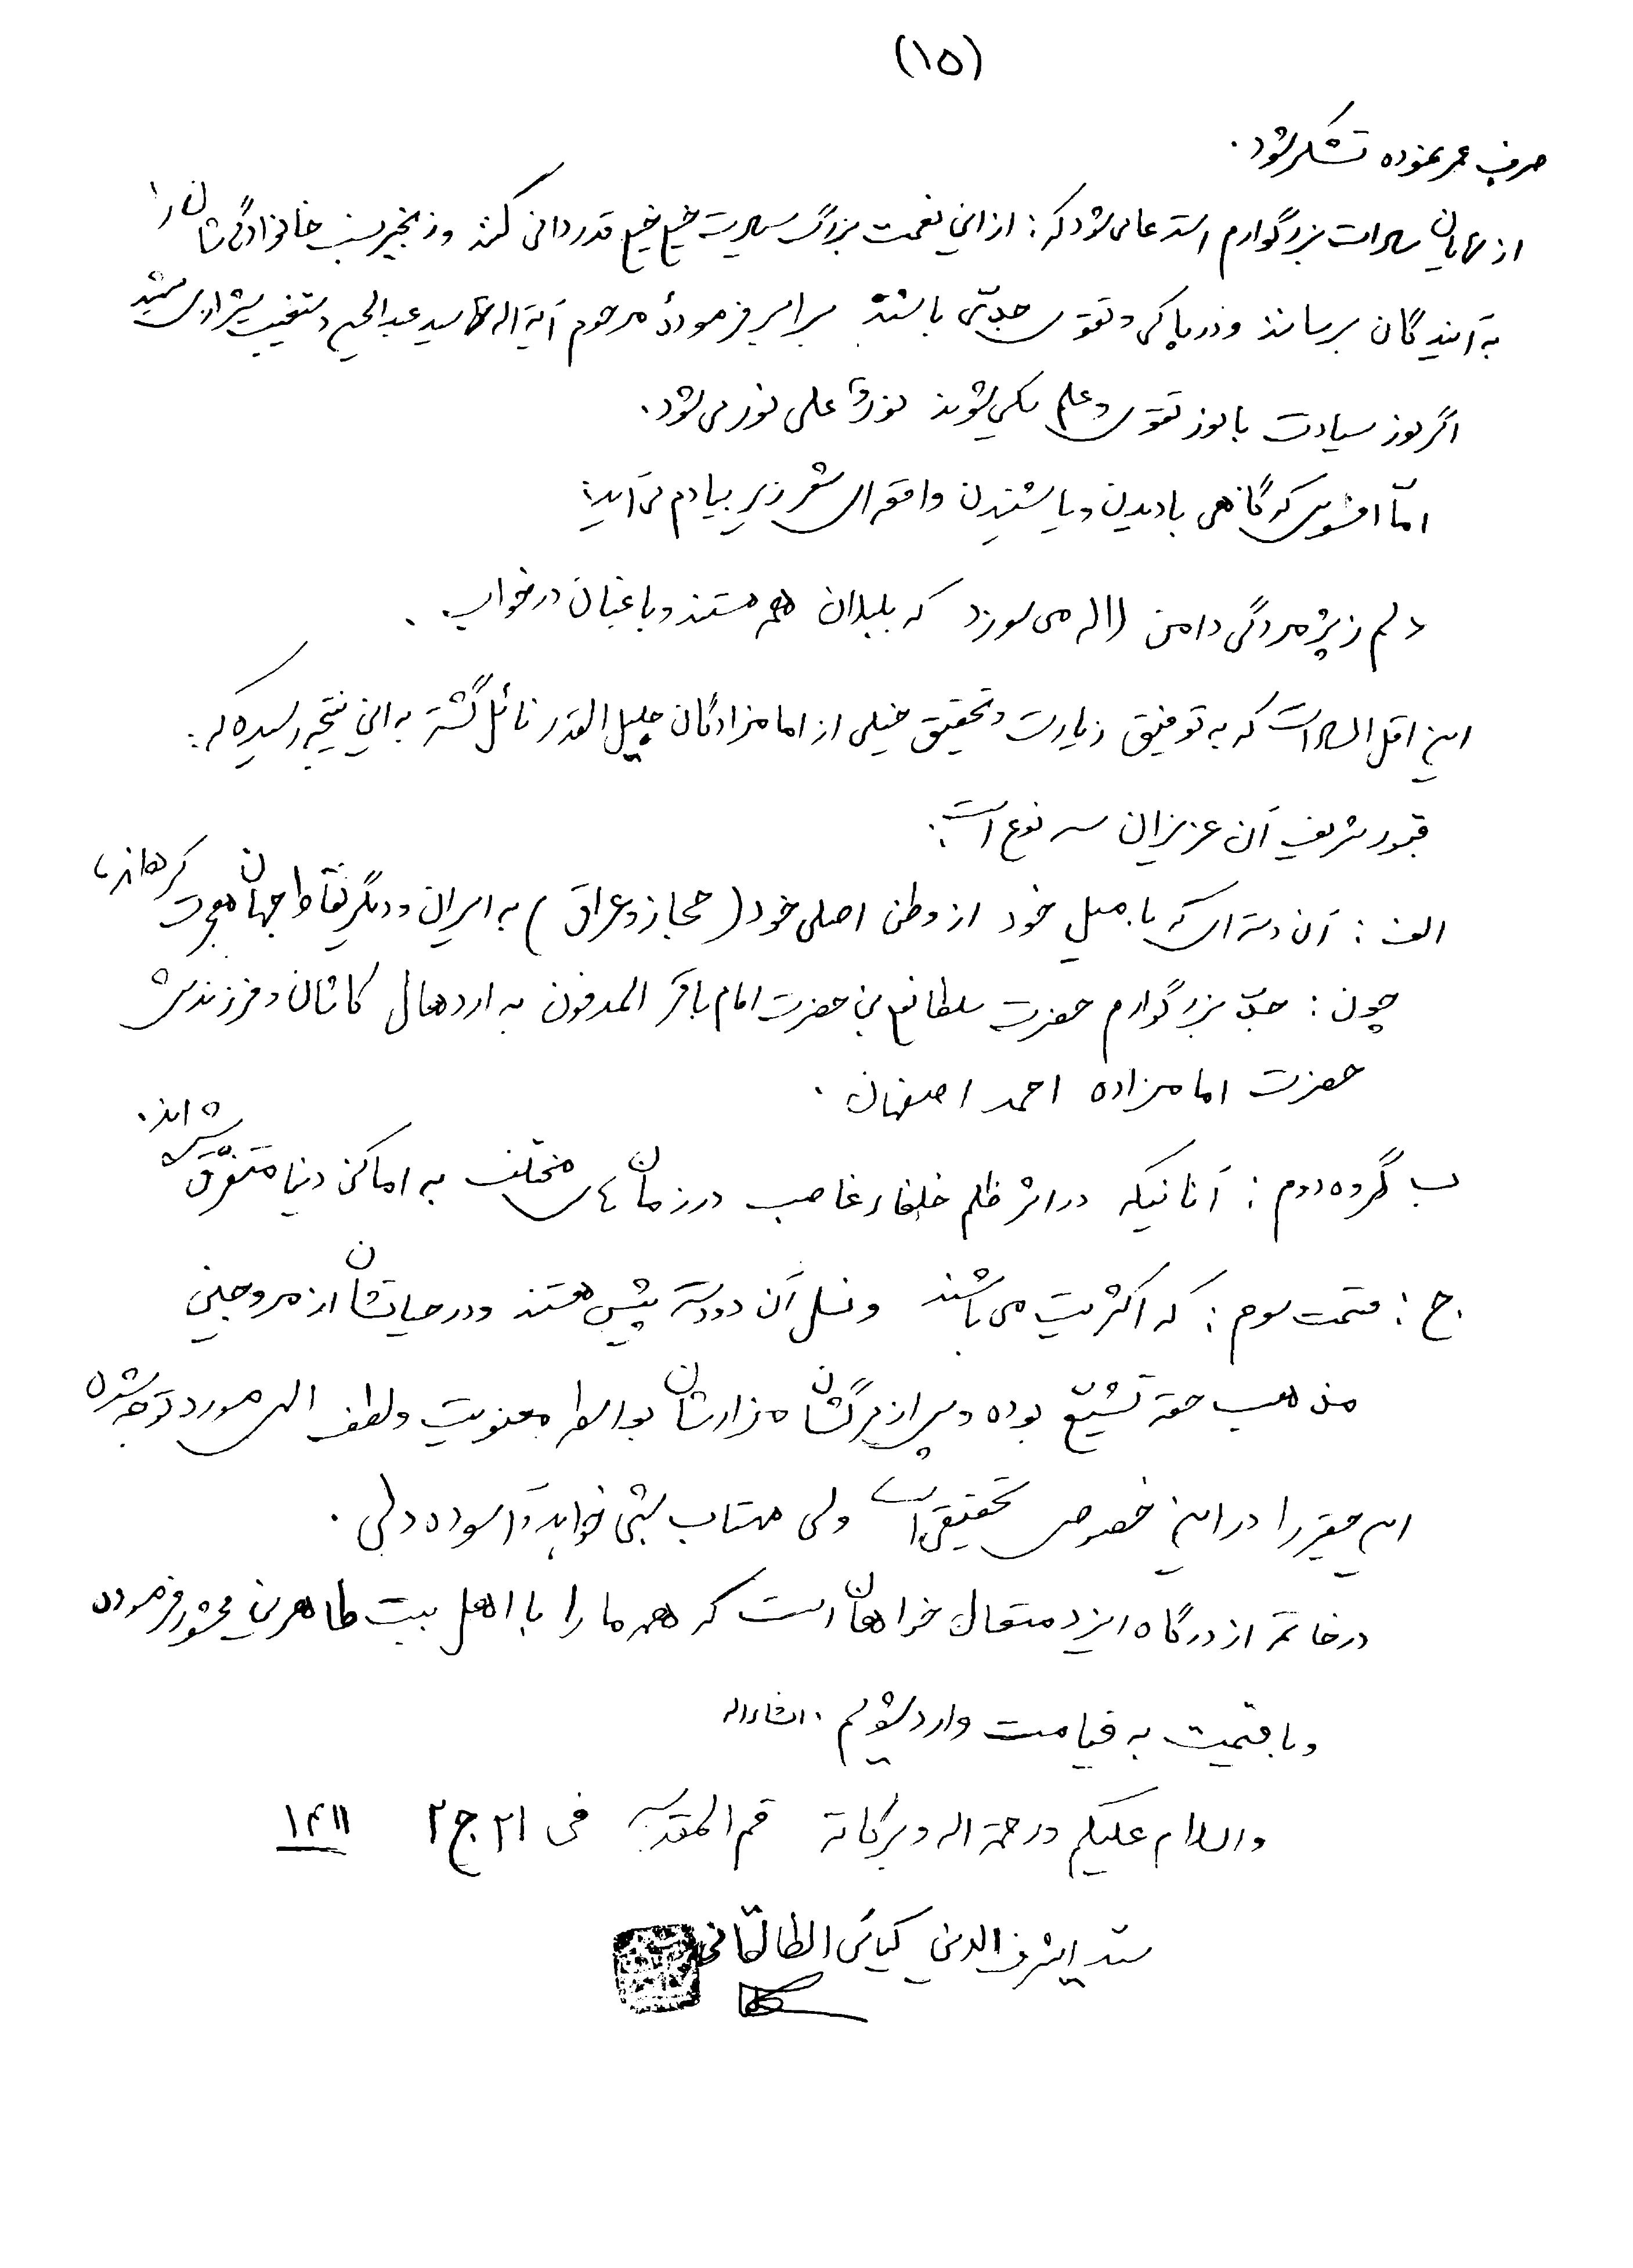 (۱۵)
صرف عمر نموده تشکر شود.
از تمامی سادات بزرگوارم استدعا می‌شود که: از این نعمت بزرگ سیادت خیلی خیلی قدردانی کنند و زنجیر نسب خانوادگی‌شان را
به آیندگان برسانند و در پاکی و تقوی جدّی باشند برابر فرموده مرحوم آیة اله سید عبدالحسین دستغیب شیرازی شهید
اگر نور سیادت با نور تقوی و علم یکی شوند نورٌ علی نور می‌شود.
امّا افسوس که گاهی با دیدن و یا شنیدن واقعه‌ای شعر زیر بیادم می‌آید:
دلم ز پژمردگی دامن لاله می‌سوزد که بلبلان همه مستند و باغبان در خواب.
این اقل السادات که به توفیق زیارت و تحقیق خیلی از امامزادگان جلیل القدر نائل گشته به این نتیجه رسیده که:
قبور شریف آن عزیزان سه نوع است:
الف: آن دسته است که با میل خود از وطن اصلی خود (حجاز و عراق) به ایران و دیگر نقاط جهان هجرت کرده‌اند،
چون: جدّ بزرگوارم حضرت سلطانعلی بن حضرت امام باقر المدفون به اردهال کاشان و فرزندش
حضرت امامزاده احمد اصفهان.
ب گروه دوم: آنانیکه در اثر ظلم خلفاء غاصب در زمان‌های مختلف به اماکن دنیا متفرّق شده‌اند.
ج: قسمت سوم: که اکثریت می‌باشند و نسل آن دو دسته پیش هستند و در حیاتشان از مروجین
مذهب حقه تشیّع بوده و پس از مرگشان مزارشان بواسطه معنویت و لطف الهی مورد توجه شده
این حقیر را در این خصوص تحقیقی است ولی مهتاب شبی خواهد و آسوده دلی.
در خاتمه از درگاه ایزد متعال خواهان است که همه ما را با اهل بیت طاهرین محشور فرموده
و با قیمت به قیامت وارد شویم. انشاءاله
والسلام علیکم و رحمة اله و برکاته قم المقدسه فی ۲۱ ج ۲ ۱۴۱۱
سید اشرف الدین کیائی الطالقانی